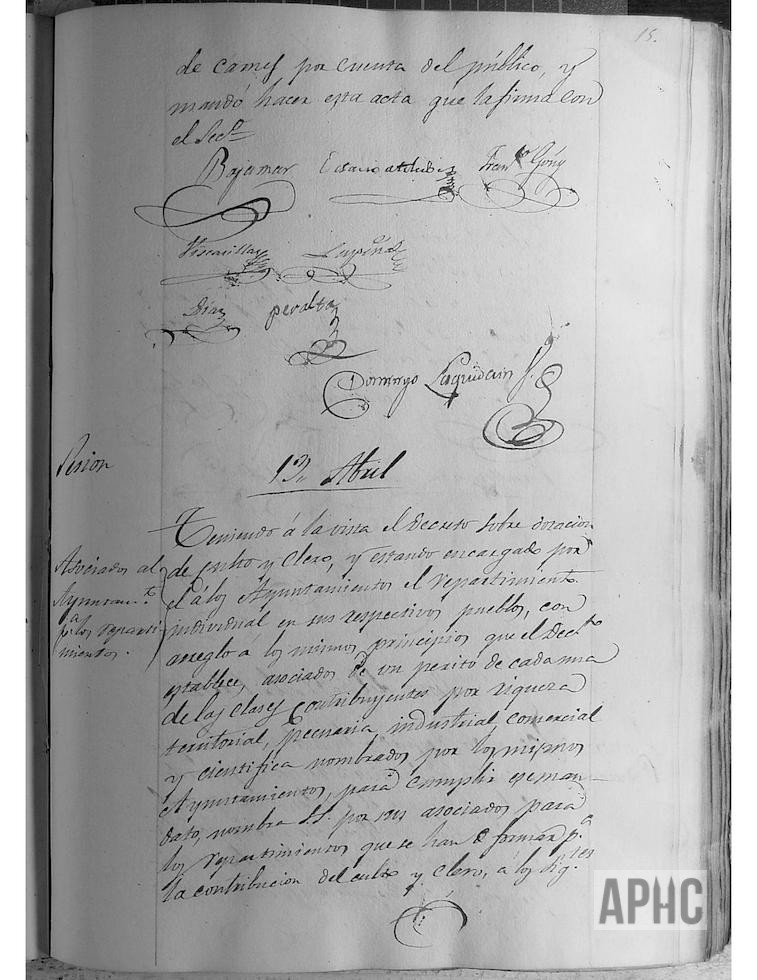 15.
de carnes por cuenta del público, y
mandó hacer esta acta que la firma con
el Secº
Bajamar Franco Goñy
Viscarillas
Diaz Peralta
Domingo Laguidain S.
Sesion
13,, Abril
Teniendo á la vista el Decreto sobre dotacion
Asociados al
Ayuntamto
pa los reparti
mientos.
de culto y Clero, y estando encargado por
el á los Ayuntamientos el repartimiento
individual en sus respectivos pueblos, con
arreglo a los mismos principios que el Decto
establece, asociados de un perito de cada una
de las clases contribuyentes por riqueza
territorial, Pecuaria, industrial, comercial
y cientifica nombrados por los mismos
Ayuntamientos, para cumplir ese man-
dato, nombra S. por sus asociados para
los repartimientos que se han de formar pa
la contribucion del culto y clero, á los sigtes
APHC